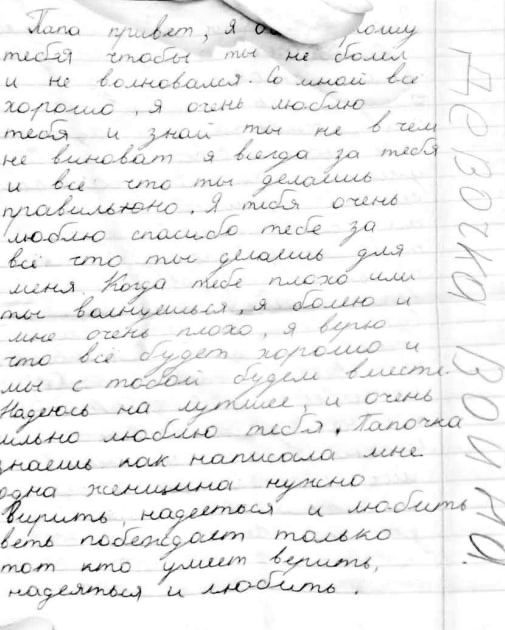 Папа привет, я прошу
тебя чтобы ты не болел
и не волновался. Со мной всё
хорошо, я очень люблю
тебя и знай ты не в чем
не виноват я всегда за тебя
и всё что ты делаешь
правильюно. Я тебя очень
люблю спасибо тебе за
всё что ты делаешь для
меня. Когда тебе плохо или
ты волнуешься, я болею и
мне очень плохо, я верю
что всё будет хорошо и
мы с тобой будем вместе.
Надеюсь на лутшее, и очень
ильно люблю тебя. Папочка
знаешь как написала мне
одна женщина нужно
верить, надееться и любить
веть побеждает только
тот кто умеет верить,
надеяться и любить.
девочка война